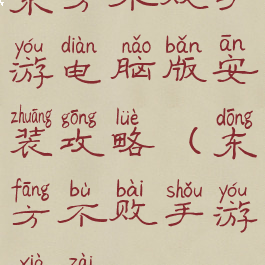 东方不败手
yóu diàn nǎo bǎn ān
游电脑版安
zhuāng gōng lüè dōng
装攻略（东
fāng bù bài shǒu yóu
方不败手游
xià zài